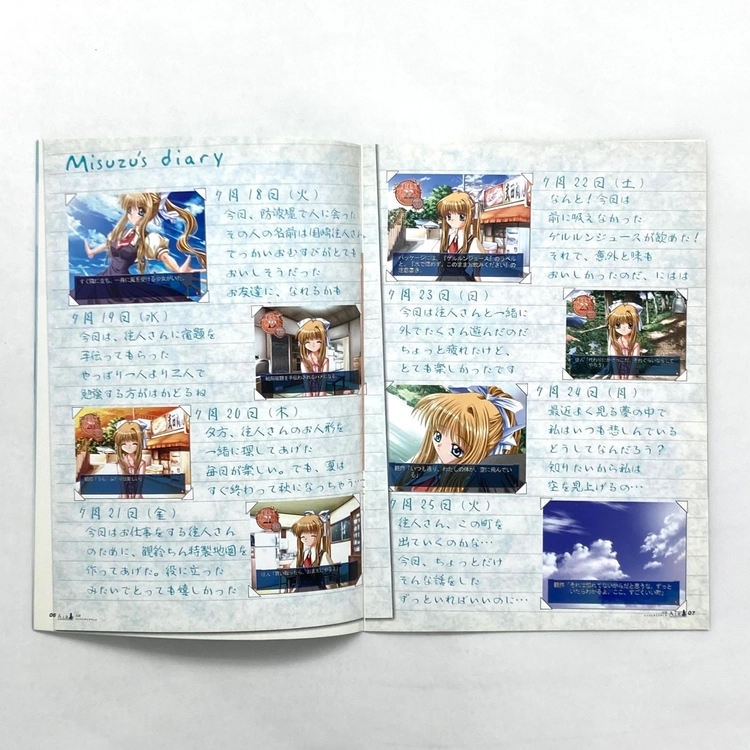 Misuzu's diary
7月18日(火)
今日、防波堤で人に会った
その人の名前は国崎往人さん
でっかいおむすびがとても
おいしそうだった
お友達に、なれるかも
すぐ隣に立ち、一身に風を受ける少女がいた。
7月19日(水)
今日は、往人さんに宿題を
手伝ってもらった
やっぱり一人より二人で
勉強する方がはかどるね
結局宿題を手伝わされるハメになる。
7月20日(木)
夕方、往人さんのお人形を
一緒に探してあげた
毎日が楽しい。でも、夏は
すぐ終わって秋になっちゃう…
7月21日(金)
今日はお仕事をする往人さん
のために、観鈴ちん特製地図を
作ってあげた。役に立った
みたいでとっても嬉しかった
06
7月22日(土)
なんと!今日は
前に吸えなかった
ゲルルンジュースが飲めた!
それで、意外と味も
おいしかったのだ、にはは
パッケージには、『ゲルルンジュース』のラベル
と、『氷で割わず、このままお飲みください』の
注意書き
7月23日(日)
今日は往人さんと一緒に
外でたくさん遊んだのだ
ちょっと疲れたけど、
とても楽しかったです
7月24日(月)
最近よく見る夢の中で
私はいつも悲しんでいる
どうしてなんだろう?
知りたいから私は
空を見上げるの…
観鈴「いつも通り、わたしの体が、空に飛んでい
る」
7月25日(火)
往人さん、この町を
出ていくのかな…
今日、ちょっとだけ
そんな話をした
ずっといればいいのに…
観鈴「それは忘れてないからだと思うな。ずっと
いたらわかるよ。ここ、すごくいい町」
AIR 07